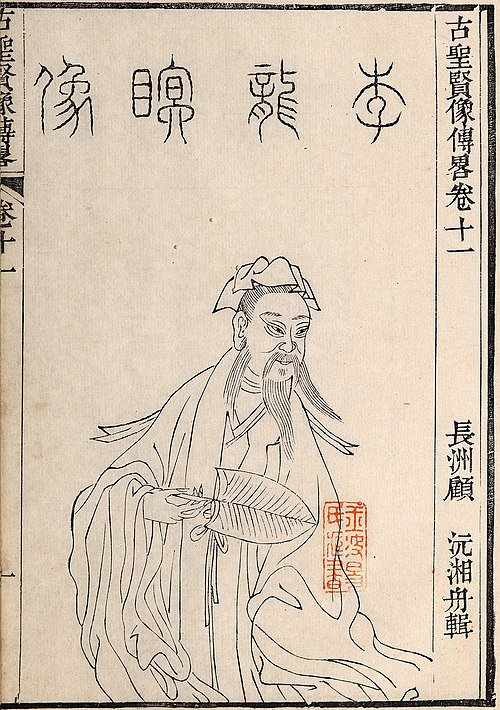 古聖賢像傳畧卷十一
長洲顧 沅湘舟輯
李龍瞑像
古聖賢像傳畧
卷十一
一